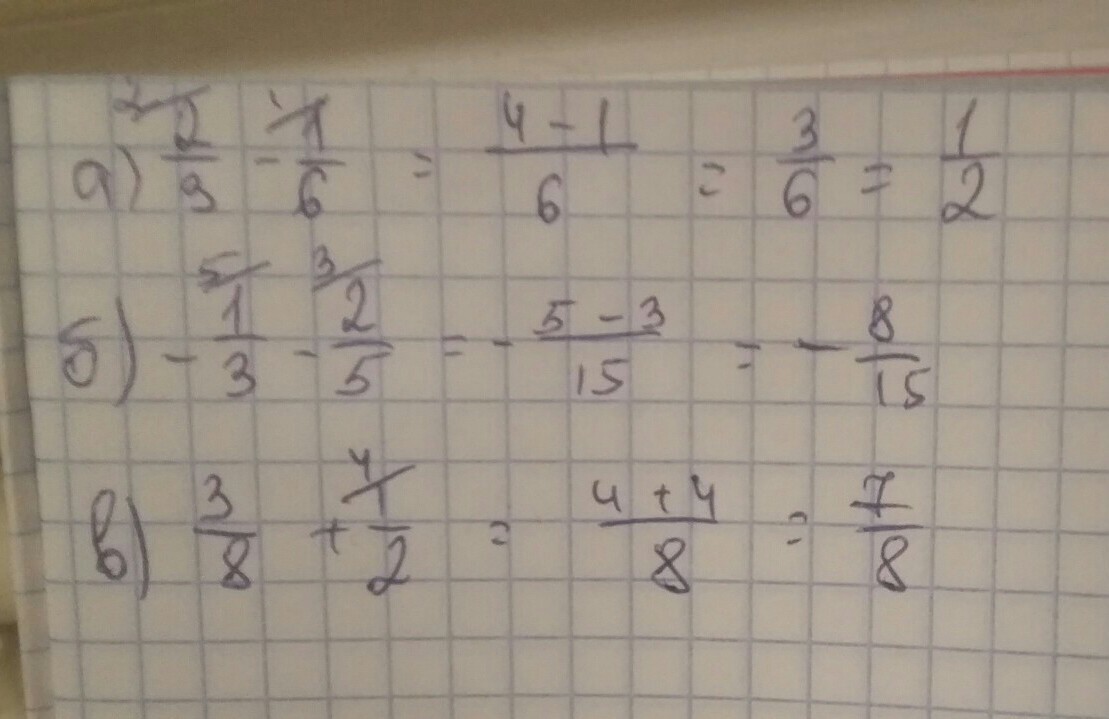 а) 2/3 - 1/6 = (4 - 1)/6 = 3/6 = 1/2
б) - 1/3 - 2/5 = - (5 - 3)/15 = - 8/15
в) 3/8 + 1/2 = (4 + 4)/8 = 7/8